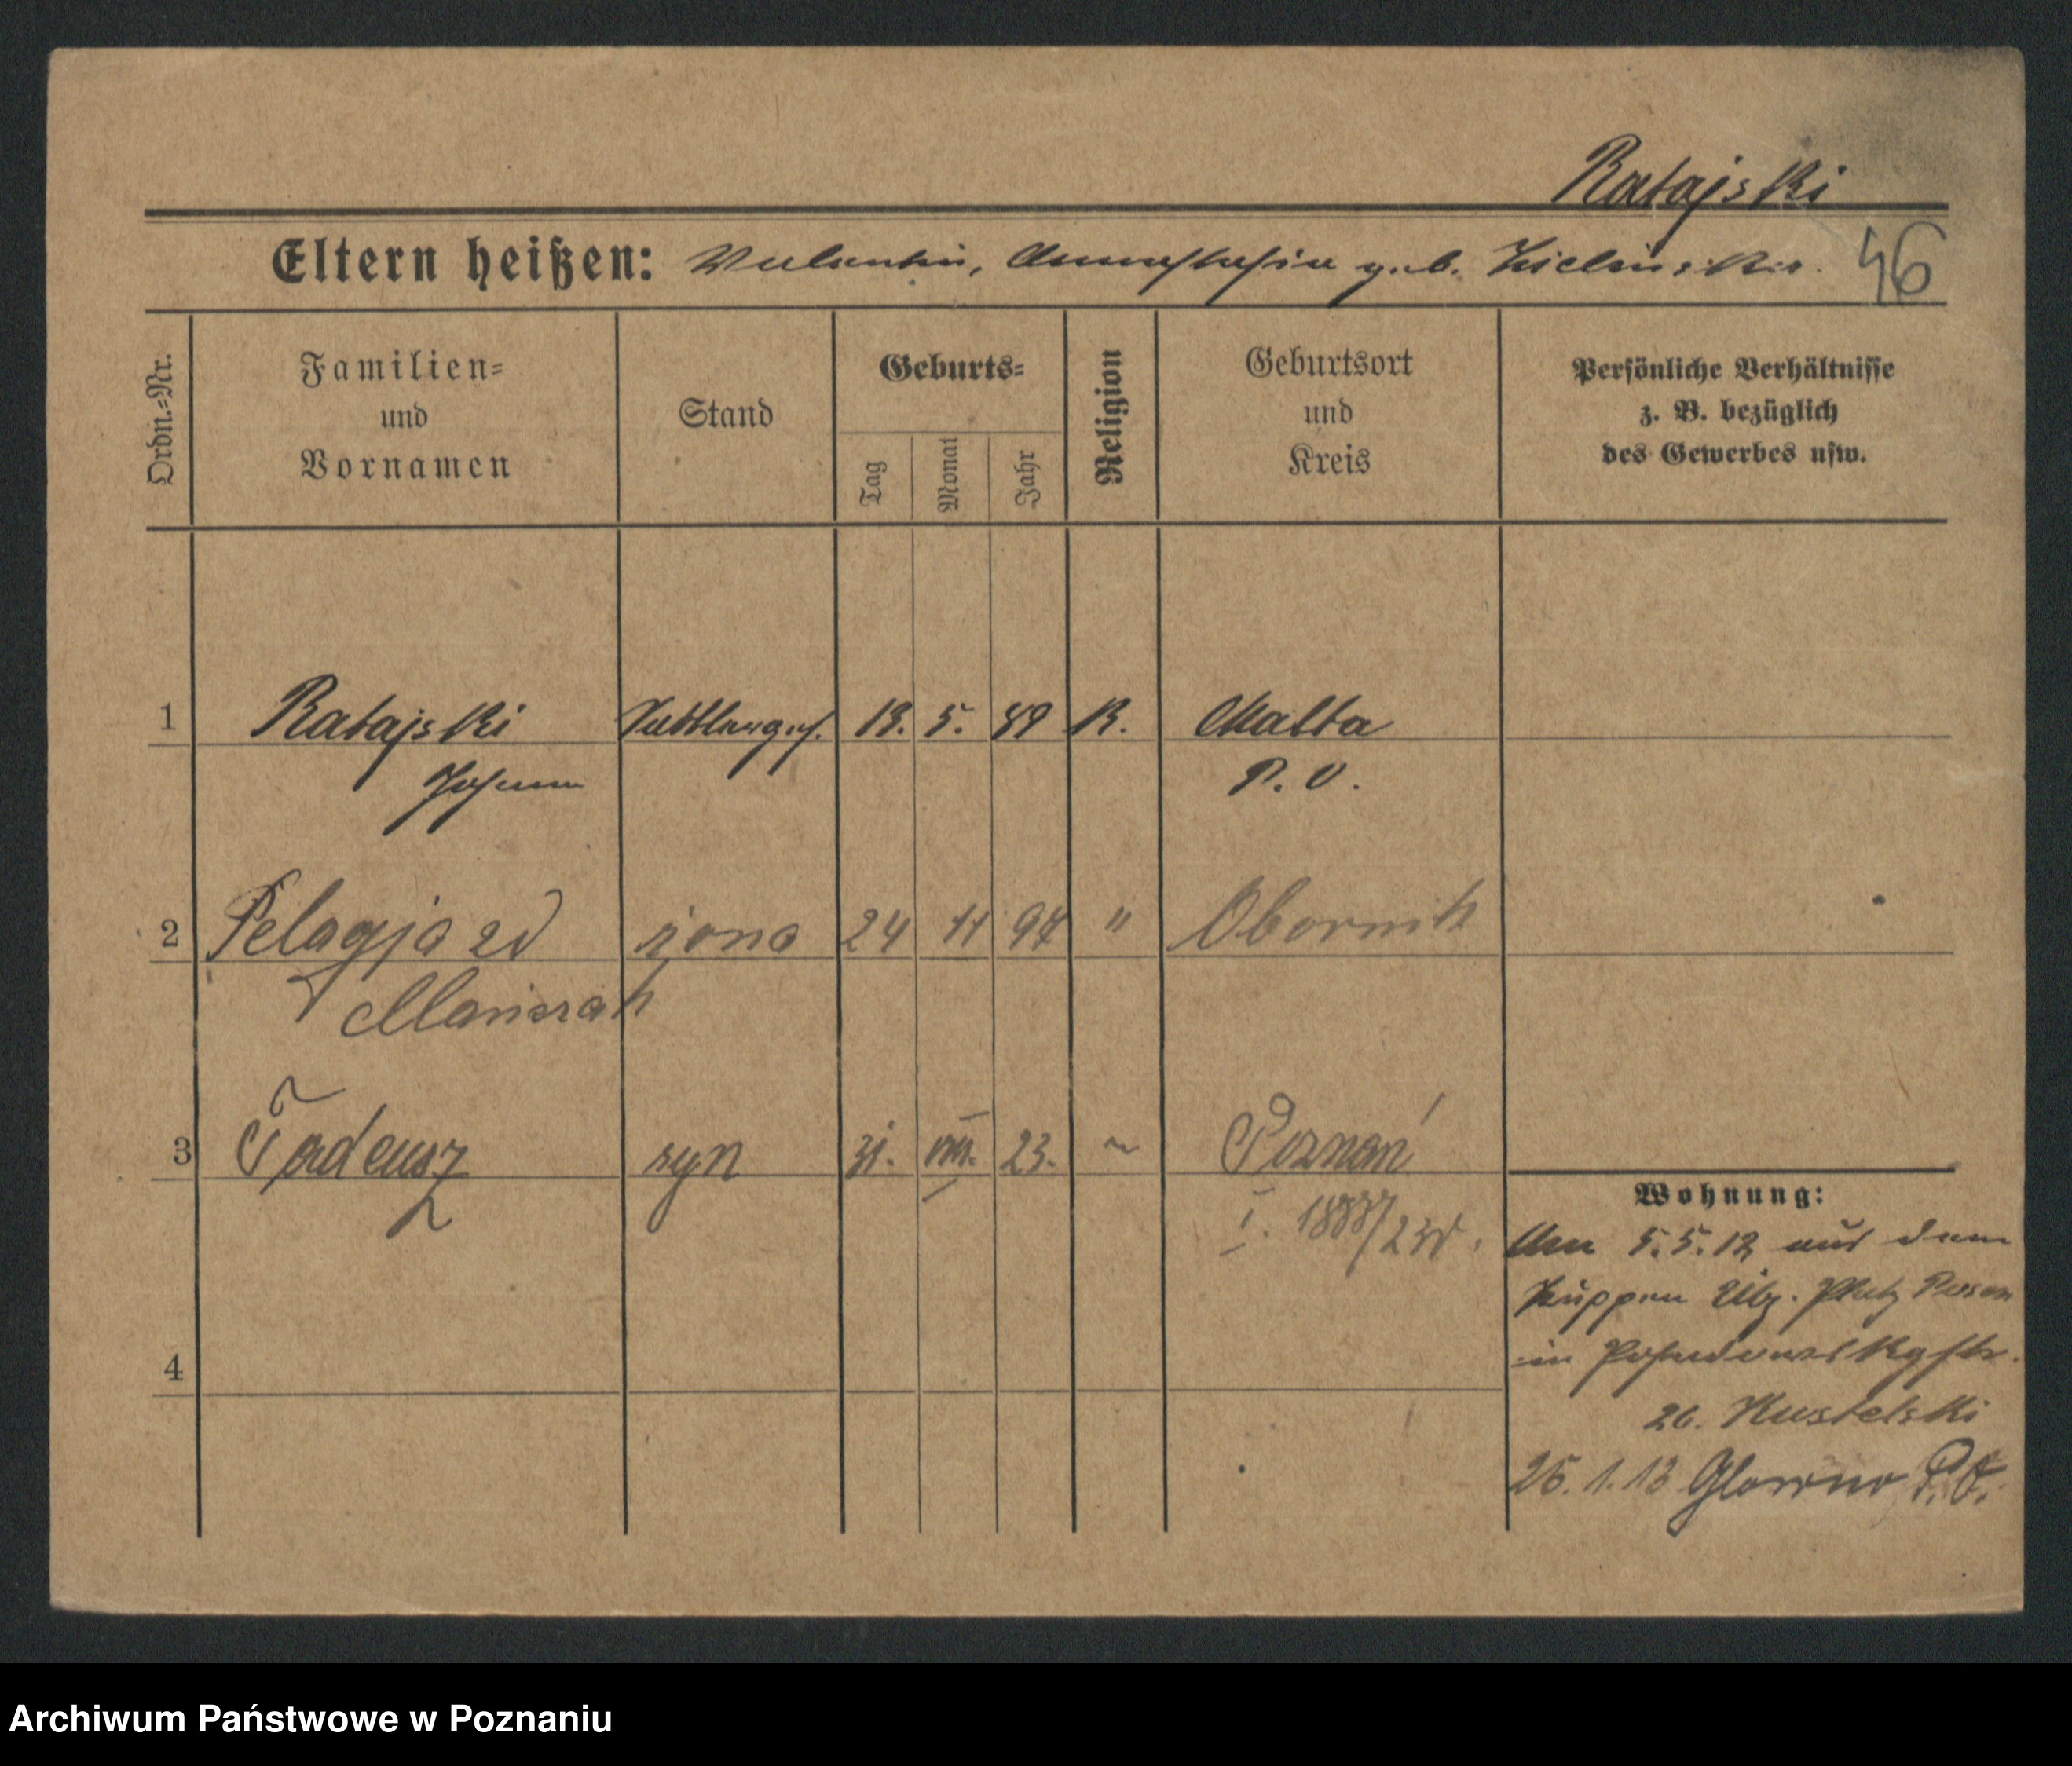 Ratajski
Eltern heißen: Valentin, Annastasia geb. Zielinska. 46
Ordn.-Nr.
Familien- und Vornamen
Stand
Geburts-
Tag
Monat
Jahr
Religion
Geburtsort und Kreis
Persönliche Verhältnisse
z. B. bezüglich
des Gewerbes usw.
1 Ratajski Sattlerges. 13. 5. 89 K. Malta
Johann P. O.
2 Pelagja zd żona 24 11 94 " Obornik
3 Tadeusz syn 31. VIII. 23. ~ Poznań
I.
Wohnung:
Am 5.5.12 aus dem
Platz Posen
in
26. Kustelski
4
25. 1. 13 Glowno P. O.
Archiwum Państwowe w Poznaniu